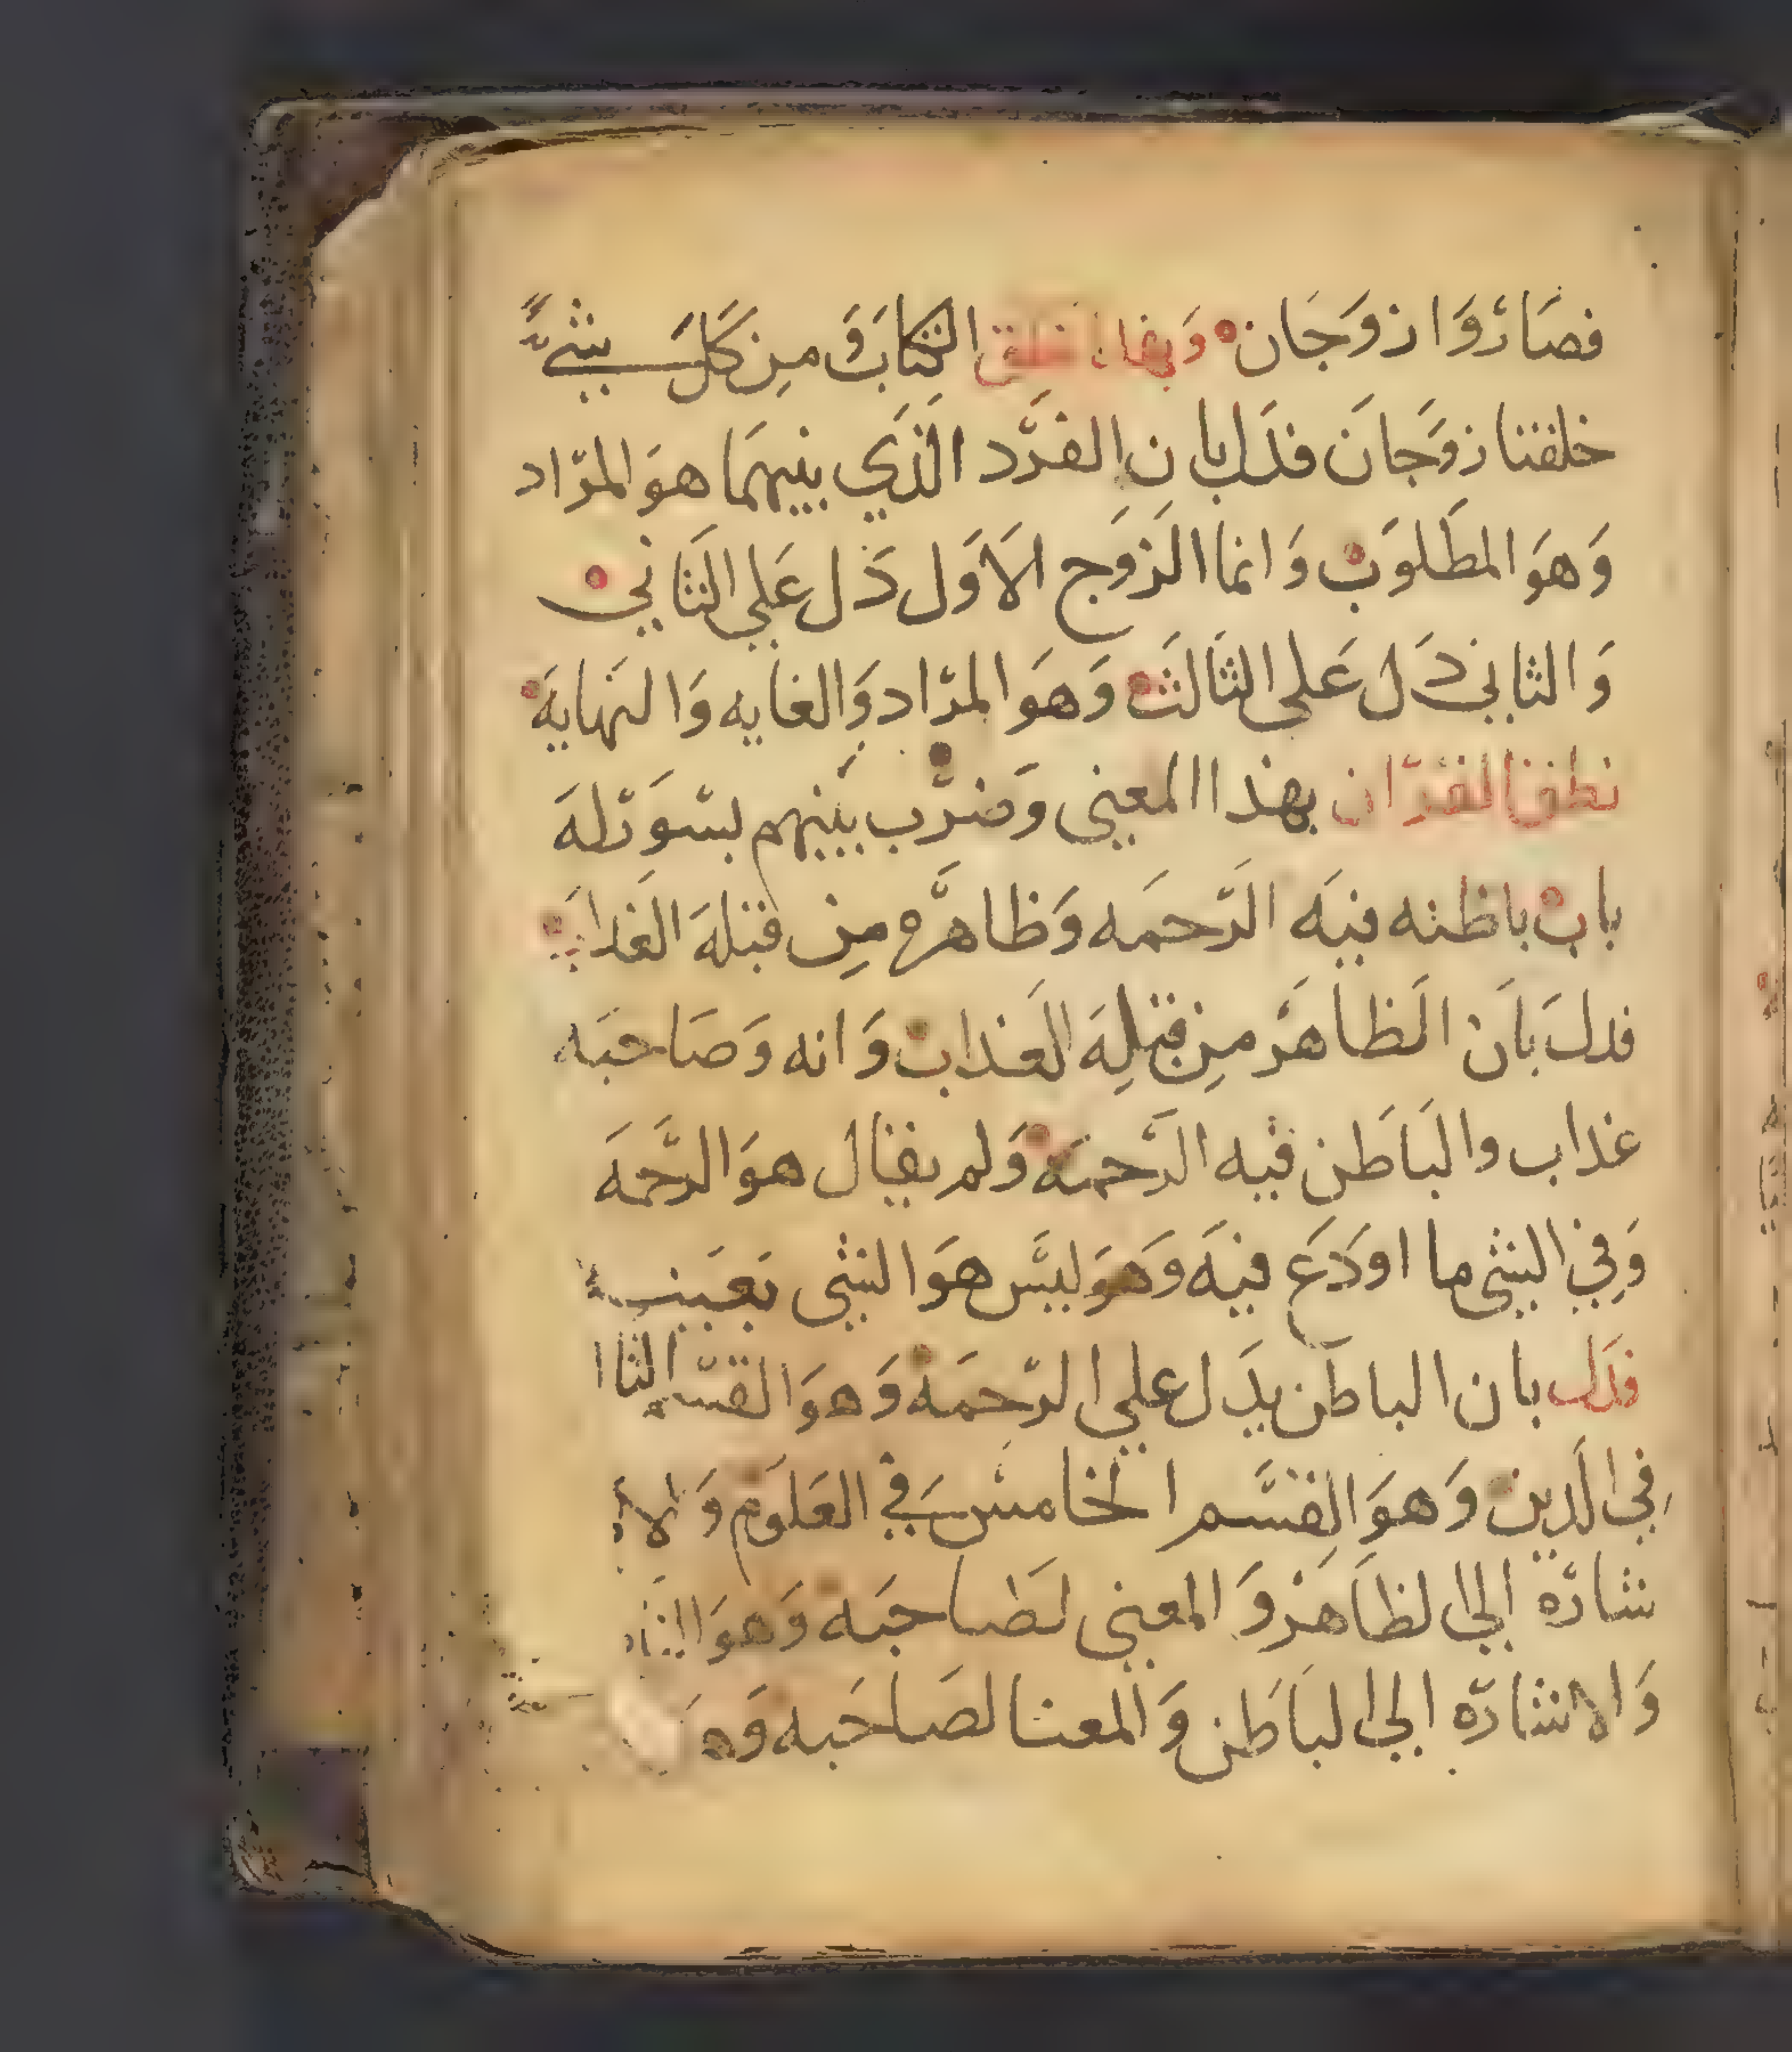 فصَارَوَا زوَجَان وَبهَاذا نطق الكتابَ وَمِن كَل شيءٍ
خلقنا زوَجانَ فدَل بان الفرَد الذَي بينهمَا هوَ المرَاد
وَهوَ المطَلوَب وَانما الزَوَج الاَوَل دَل عَلي الثَاني
وَالثاني دَل عَلى الثاَلثَ وَهوَ المرَاد وَالغايه وَالنهايهَ
نطق القرَان بهذا المعنى وَضرَب بينهم بسَوَر لهَ
باب باطنه فيهَ الرَحمَه وَظاهرَه مِن قبلهَ العَذاب
فدلَ باَن الظاهرَ مِن قبلِهَ العَذاب وَانه وَصَاحبَه
عذاب والبَاطَن فيه الرَحمَه وَلم يقال هوَ الرَحمهَ
وَفِي الشى ما اودَع فيهَ وَهوَ ليسَ هوَ الشى بعَينه
فدَل بان الباطَن يدَل على الرَحمَه وَهوَ القسَم الثاا
فِي الدَين وَهوَ القِسَم الخامسَ في العَلوَم وَالا
شارَه إلى الظاَهرَ وَالمعنى لصَاحبَه وَهوَ
وَالاشارَه إلى البَاطَن وَالمعنا لصَاحَبه